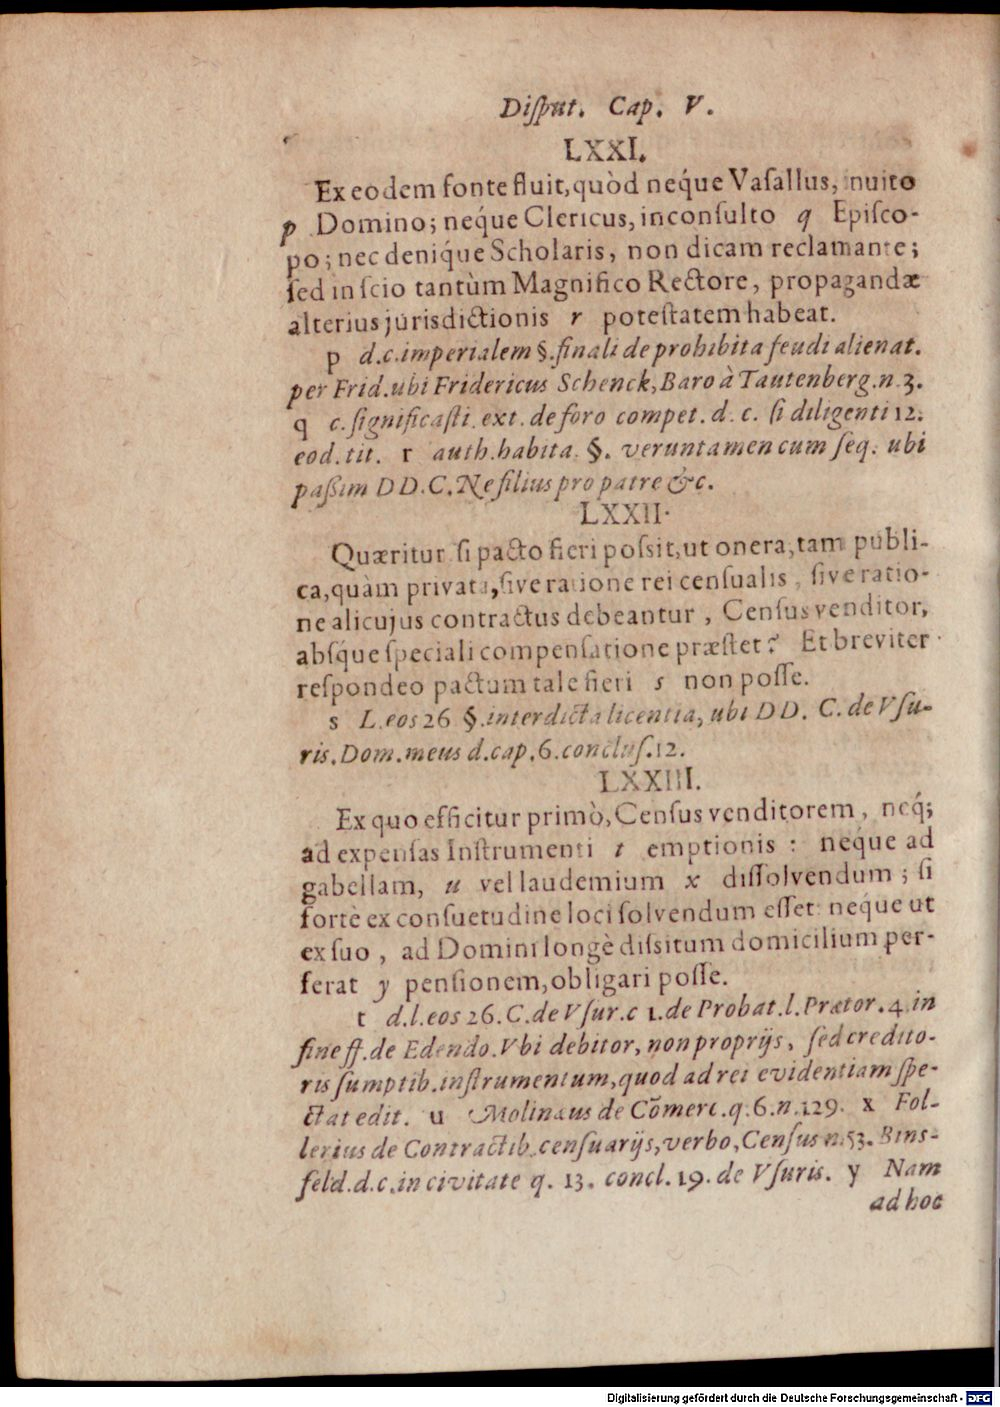 Diſput. Cap. V.
LXXI.
Ex eodem fonte fluit, quòd neq́ue Vaſallus, inuito
p Domino; neq́ue Clericus, inconſulto q Epiſco-
po; nec deniq́ue Scholaris, non dicam reclamante;
ſed inſcio tantùm Magnifico Rectore, propagandæ
alterius jurisdictionis r poteſtatem habeat.
p d. c. imperialem §. finali de prohibita feudi alienat.
per Frid. ubi Fridericus Schenck, Baro à Tautenberg. n. 3.
q c. ſignificaſti. ext. de foro compet. d. c. ſi diligenti 12.
eod. tit. r auth. habita. §. veruntamen cum ſeq. ubi
paßim DD. C. Ne filius pro patre &c.
LXXII.
Quæritur ſi pacto fieri poſsit, ut onera, tam publi-
ca, quàm privata, ſive ratione rei cenſualis, ſive ratio-
ne alicujus contractus debeantur, Cenſus venditor,
abſq́ue ſpeciali compenſatione præſtet? Et breviter
reſpondeo pactum tale fieri s non poſſe.
s L. eos 26 §. interdicta licentia, ubi DD. C. de Vſu-
ris. Dom. meus d. cap. 6. concluſ. 12.
LXXIII.
Ex quo efficitur primò, Cenſus venditorem, neq́;
ad expenſas Inſtrumenti t emptionis: neq́ue ad
gabellam, u vel laudemium x diſſolvendum; ſi
fortè ex conſuetudine loci ſolvendum eſſet: neque ut
ex ſuo, ad Domini longè diſsitum domicilium per-
ferat y penſionem, obligari poſſe.
t d. l. eos 26. C. de Vſur. c 1. de Probat. l. Prætor. 4. in
fine ff. de Edendo. Vbi debitor, non proprijs, ſed credito-
ris ſumptib. inſtrumentum, quod ad rei evidentiam ſpe-
ctat edit. u Molinæus de Com̃erc. q. 6. n. 129. x Fol-
lerius de Contractib. cenſuarijs, verbo, Cenſus n. 53. Bins-
feld. d. c. in civitate q. 13. concl. 19. de Vſuris. y Nam
ad hoc
Digitalisierung gefördert durch die Deutsche Forschungsgemeinschaft - DFG